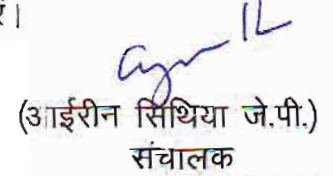 ।
(आईरीन सिंथिया जे.पी.)
संचालक